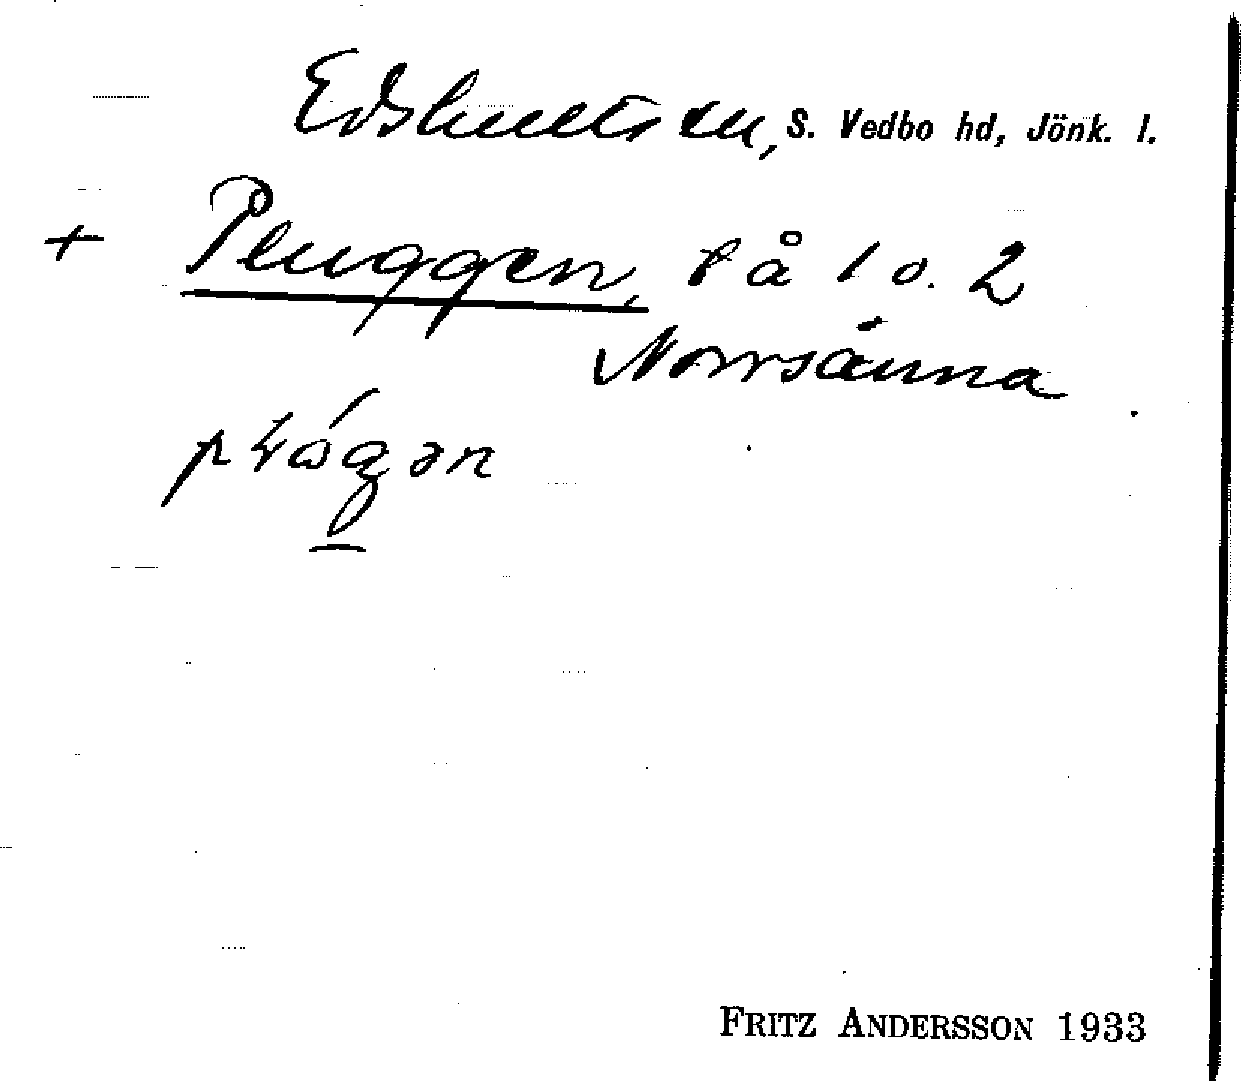 Edshults sn, S. Vedbo hd, Jönk. l.
+ Pluggen, på 1 o. 2
Norrsånna
FRITZ ANDERSSON 1933